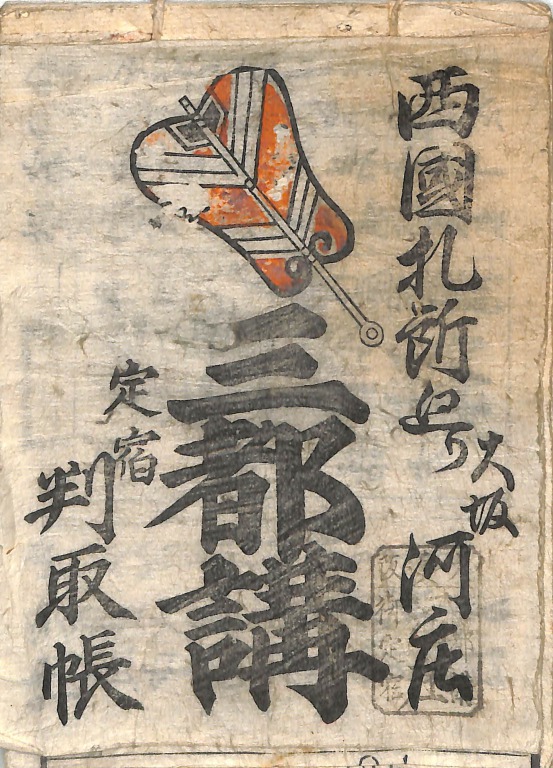 西國札所廻り
大坂
河庄
三都講
定宿
判取帳